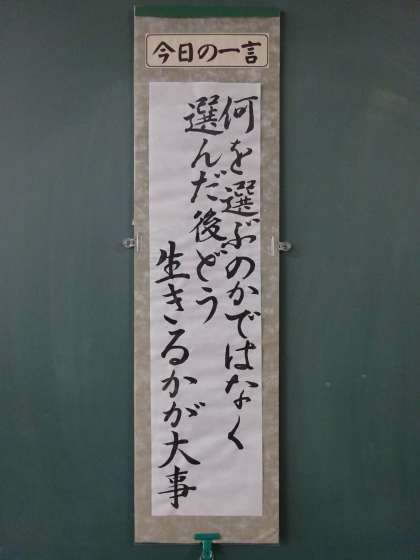 今日の一言
何を選ぶのかではなく
選んだ後どう
生きるかが大事